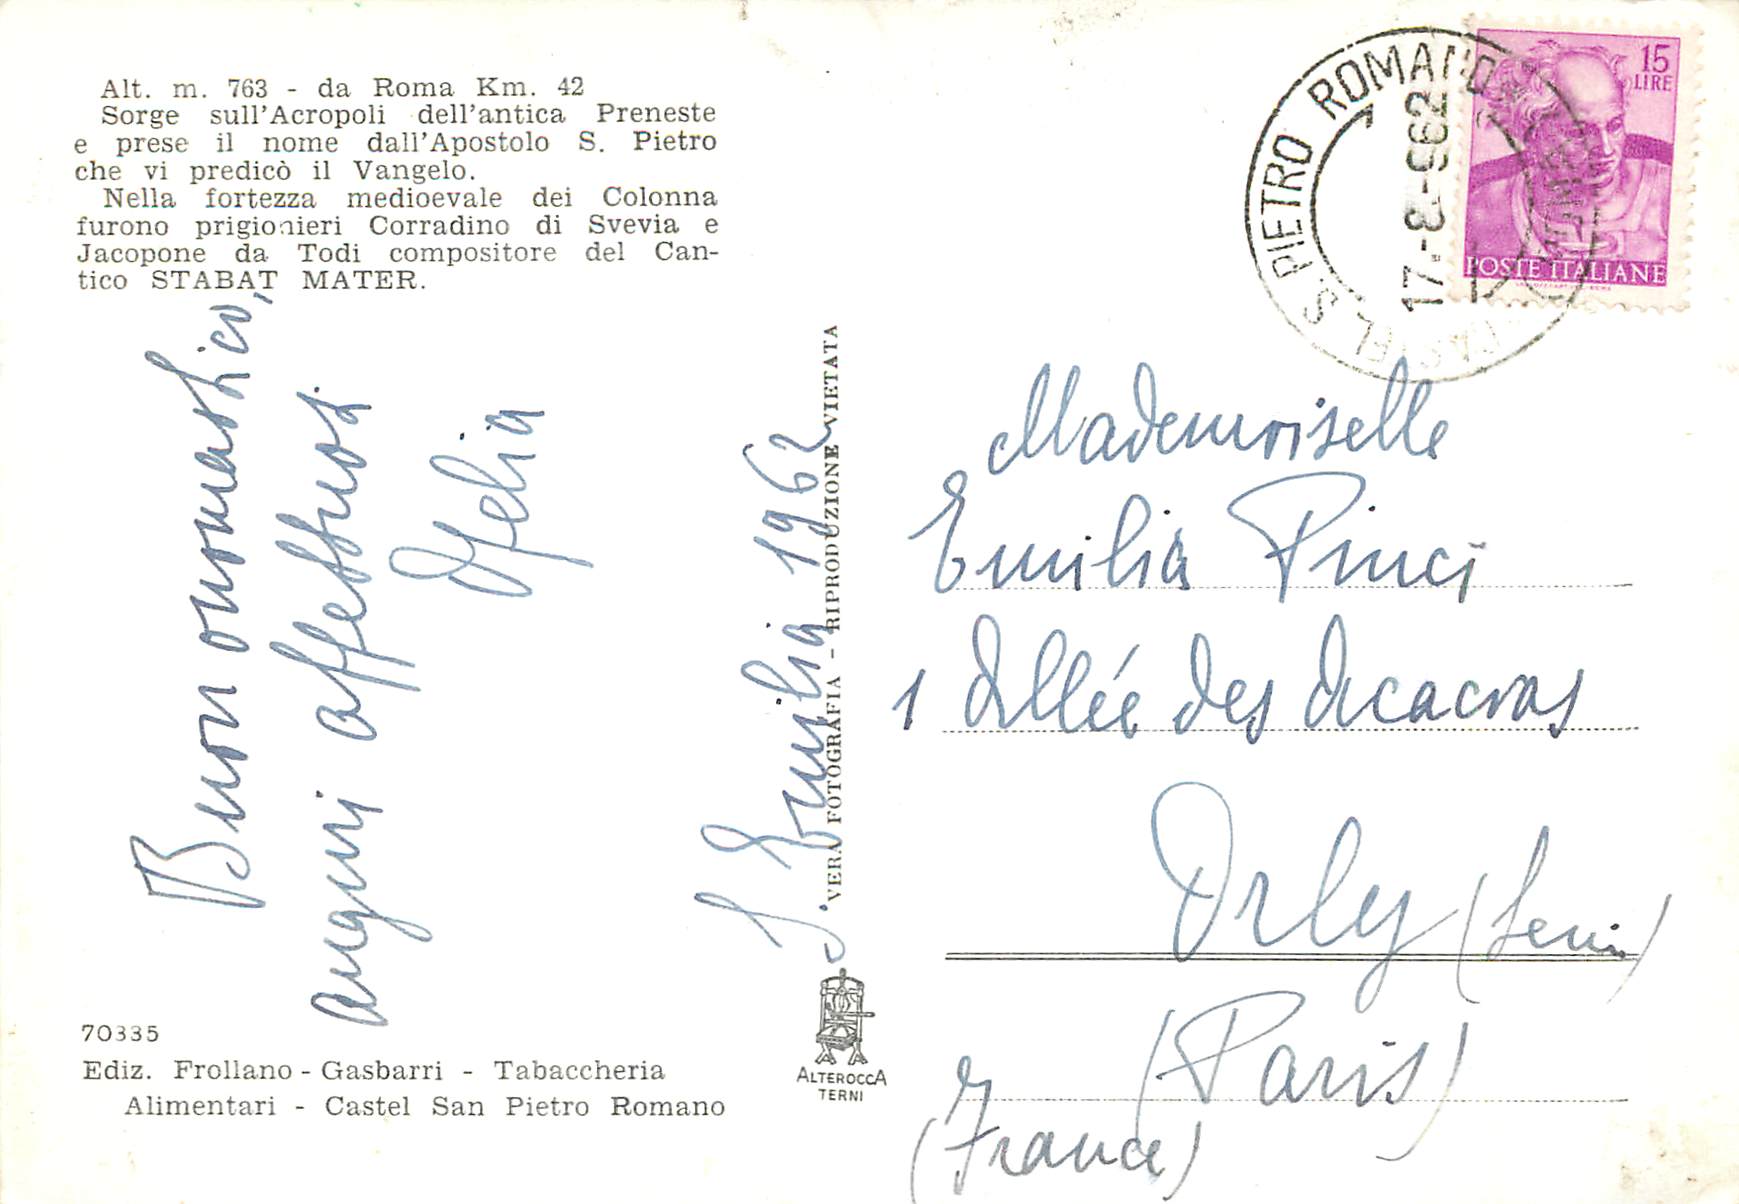 Alt. m. 763 - da Roma Km. 42
Sorge sull'Acropoli dell'antica Preneste
e prese il nome dall'Apostolo S. Pietro
che vi predicò il Vangelo.
Nella fortezza medioevale dei Colonna
furono prigionieri Corradino di Svevia e
Jacopone da Todi compositore del Can-
tico STABAT MATER.
Buon onomastico,
auguri affettuosi
Ofelia
S. Emilia 1962
70335
Ediz. Frollano - Gasbarri - Tabaccheria
Alimentari - Castel San Pietro Romano
VERA FOTOGRAFIA - RIPRODUZIONE VIETATA
ALTEROCCA
TERNI
CASTEL S. PIETRO ROMANO
17-8-962
15
LIRE
POSTE ITALIANE
Mademoiselle
Emilia Pinci
1 Allée des Acacias
Orly (Seine)
(Paris)
(France)